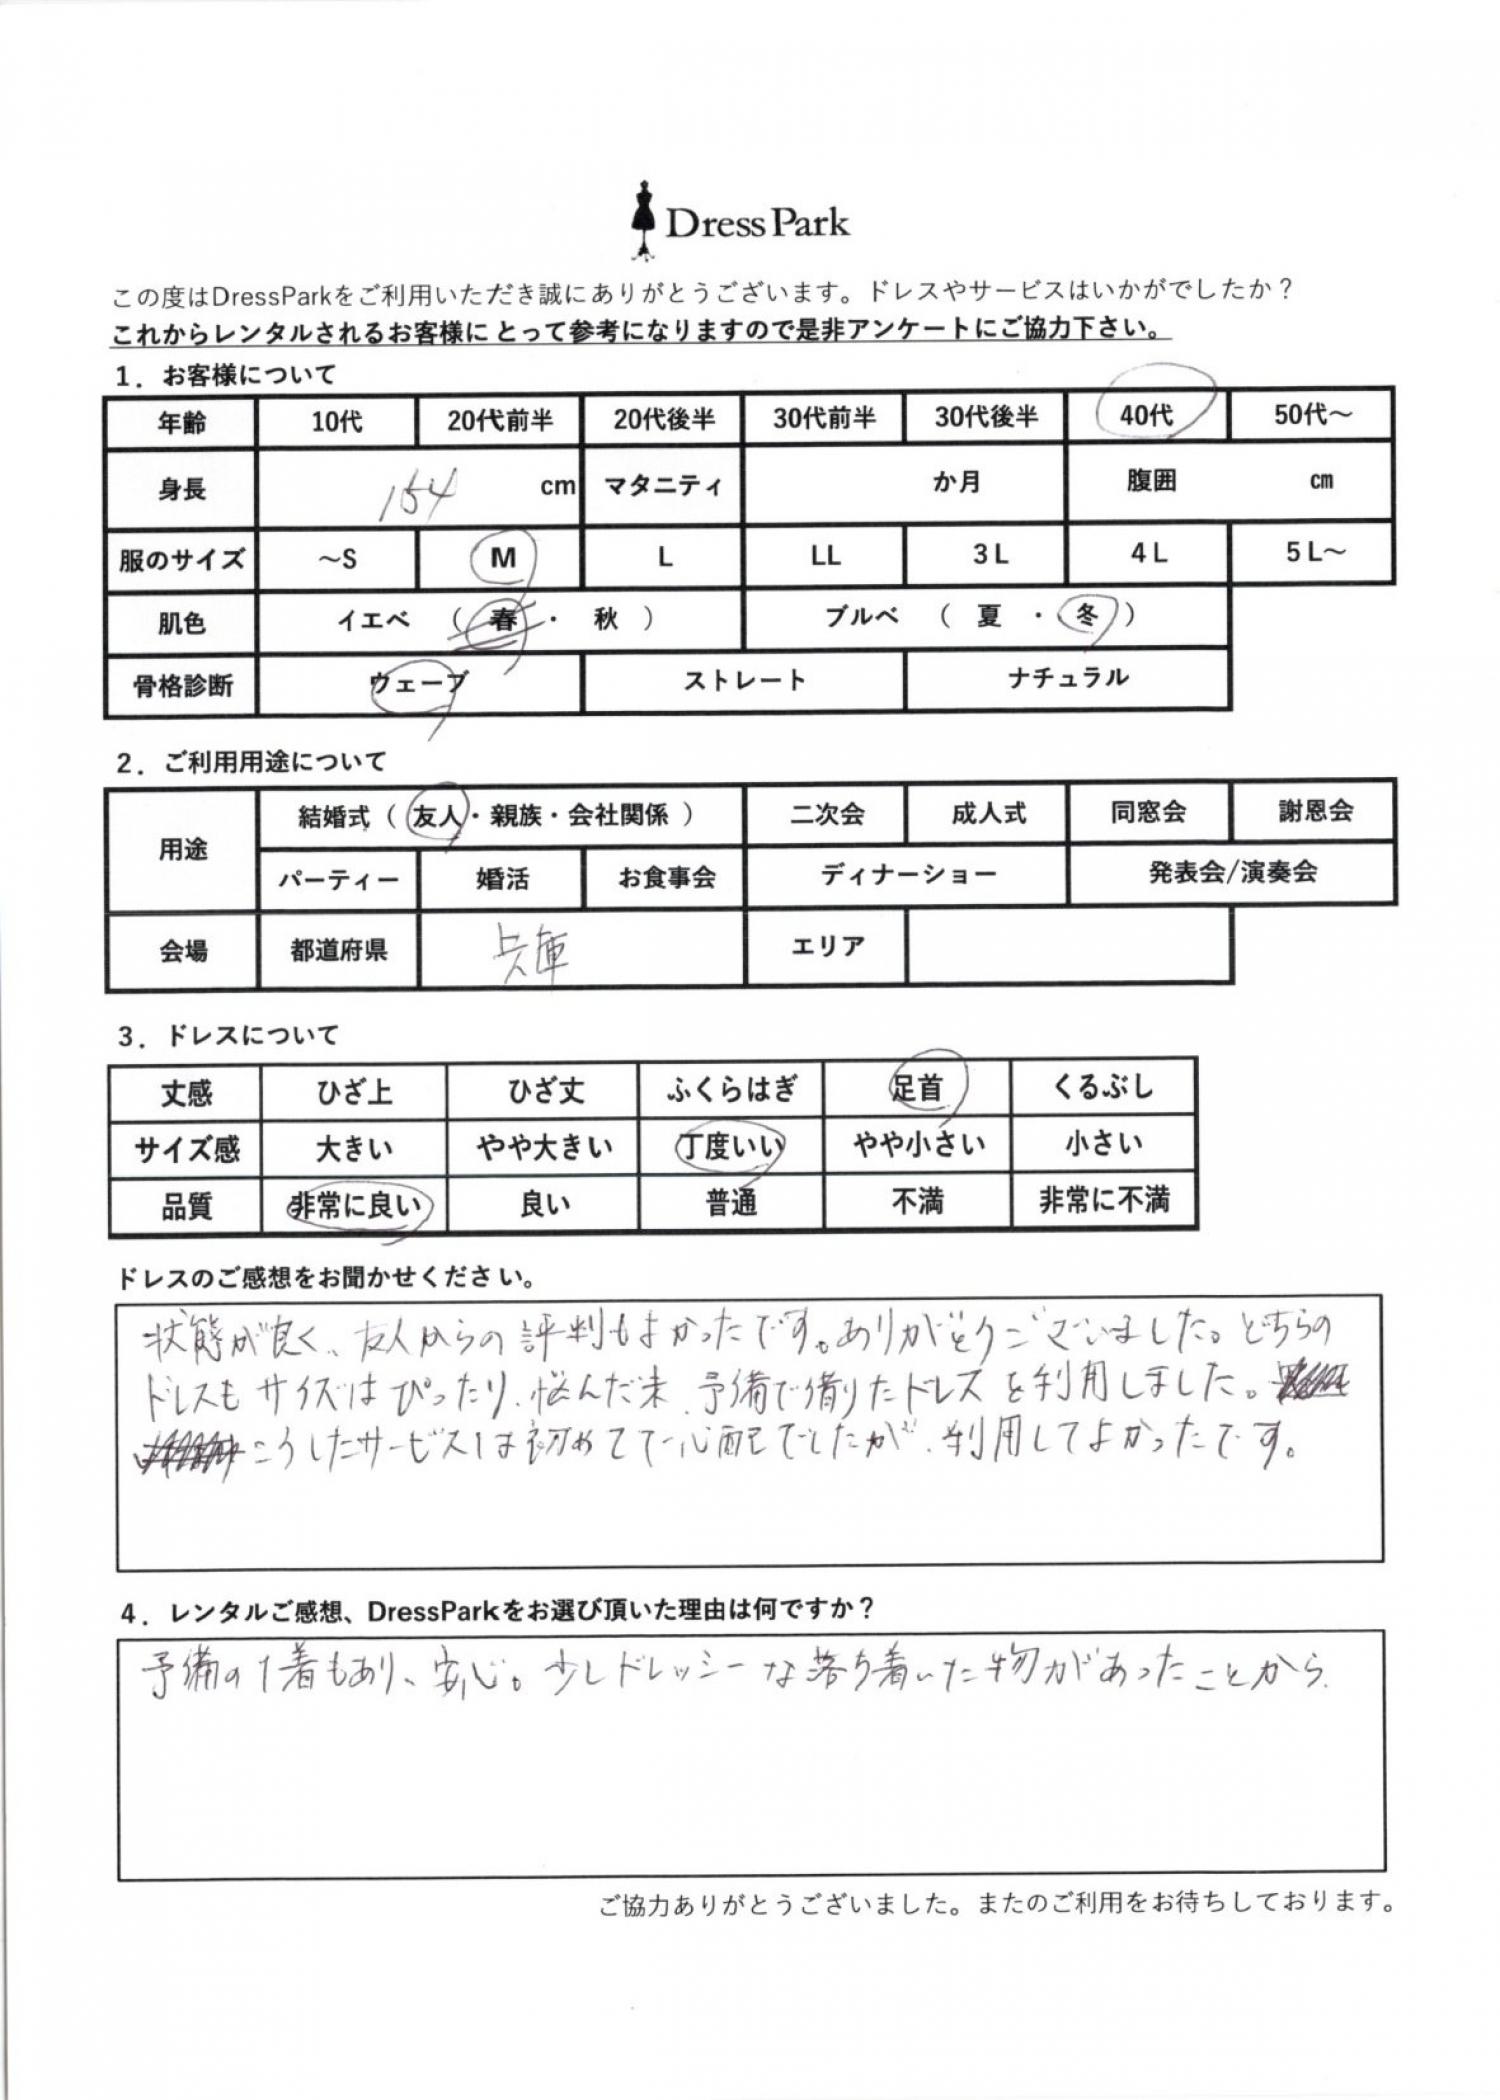 Dress Park
この度はDressParkをご利用いただき誠にありがとうございます。ドレスやサービスはいかがでしたか？
これからレンタルされるお客様にとって参考になりますので是非アンケートにご協力下さい。
1．お客様について
年齢 10代 20代前半 20代後半 30代前半 30代後半 40代 50代～
身長 154 cm マタニティ か月 腹囲 cm
服のサイズ ～S M L LL 3L 4L 5L～
肌色 イエベ （ 春 ・ 秋 ） ブルベ （ 夏 ・ 冬 ）
骨格診断 ウェーブ ストレート ナチュラル
2．ご利用用途について
用途 結婚式（ 友人・親族・会社関係 ） 二次会 成人式 同窓会 謝恩会
パーティー 婚活 お食事会 ディナーショー 発表会/演奏会
会場 都道府県 兵庫 エリア
3．ドレスについて
丈感 ひざ上 ひざ丈 ふくらはぎ 足首 くるぶし
サイズ感 大きい やや大きい 丁度いい やや小さい 小さい
品質 非常に良い 良い 普通 不満 非常に不満
ドレスのご感想をお聞かせください。
状態が良く、友人からの評判もよかったです。ありがとうございました。どちらの
ドレスもサイズはぴったり、悩んだ末、予備で借りたドレスを利用しました。
こうしたサービスは初めてで心配でしたが、利用してよかったです。
4．レンタルご感想、DressParkをお選び頂いた理由は何ですか？
予備の1着もあり、安心。少しドレッシーな落ち着いた物があったことから、
ご協力ありがとうございました。またのご利用をお待ちしております。